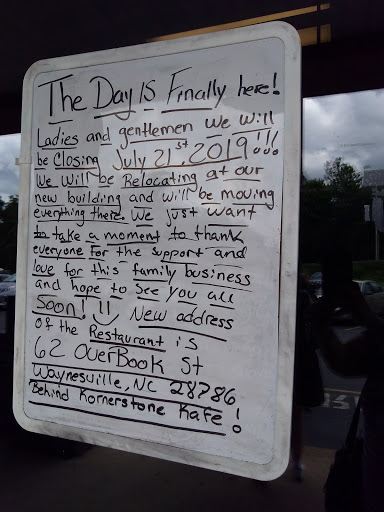 The Day IS Finally here!
Ladies and gentlemen we will
be Closing July 21st, 2019!!!
We Will be Relocating at our
new building and will be moving
everything there. We just want
to take a moment to thank
everyone For the support and
love for this family business
and hope to See you all
Soon! !! New address
of the Restaurant is
62 OverBook St
Waynesville, NC 28786
Behind Kornerstone Kafe!